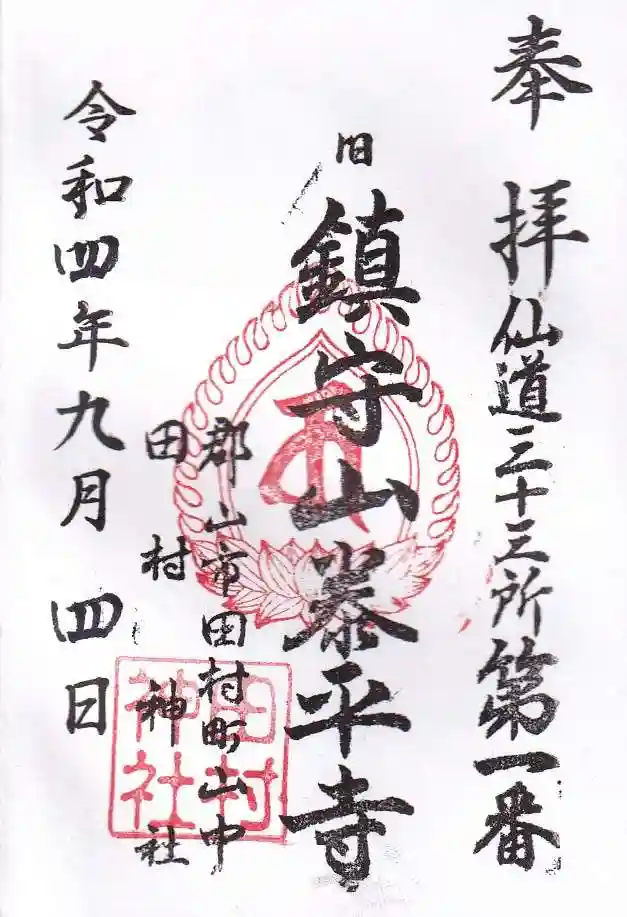 奉拝
仙道三十三所第一番
旧
鎮守山泰平寺
郡山市田村町山中
田村神社
田村
神社
令和四年九月四日